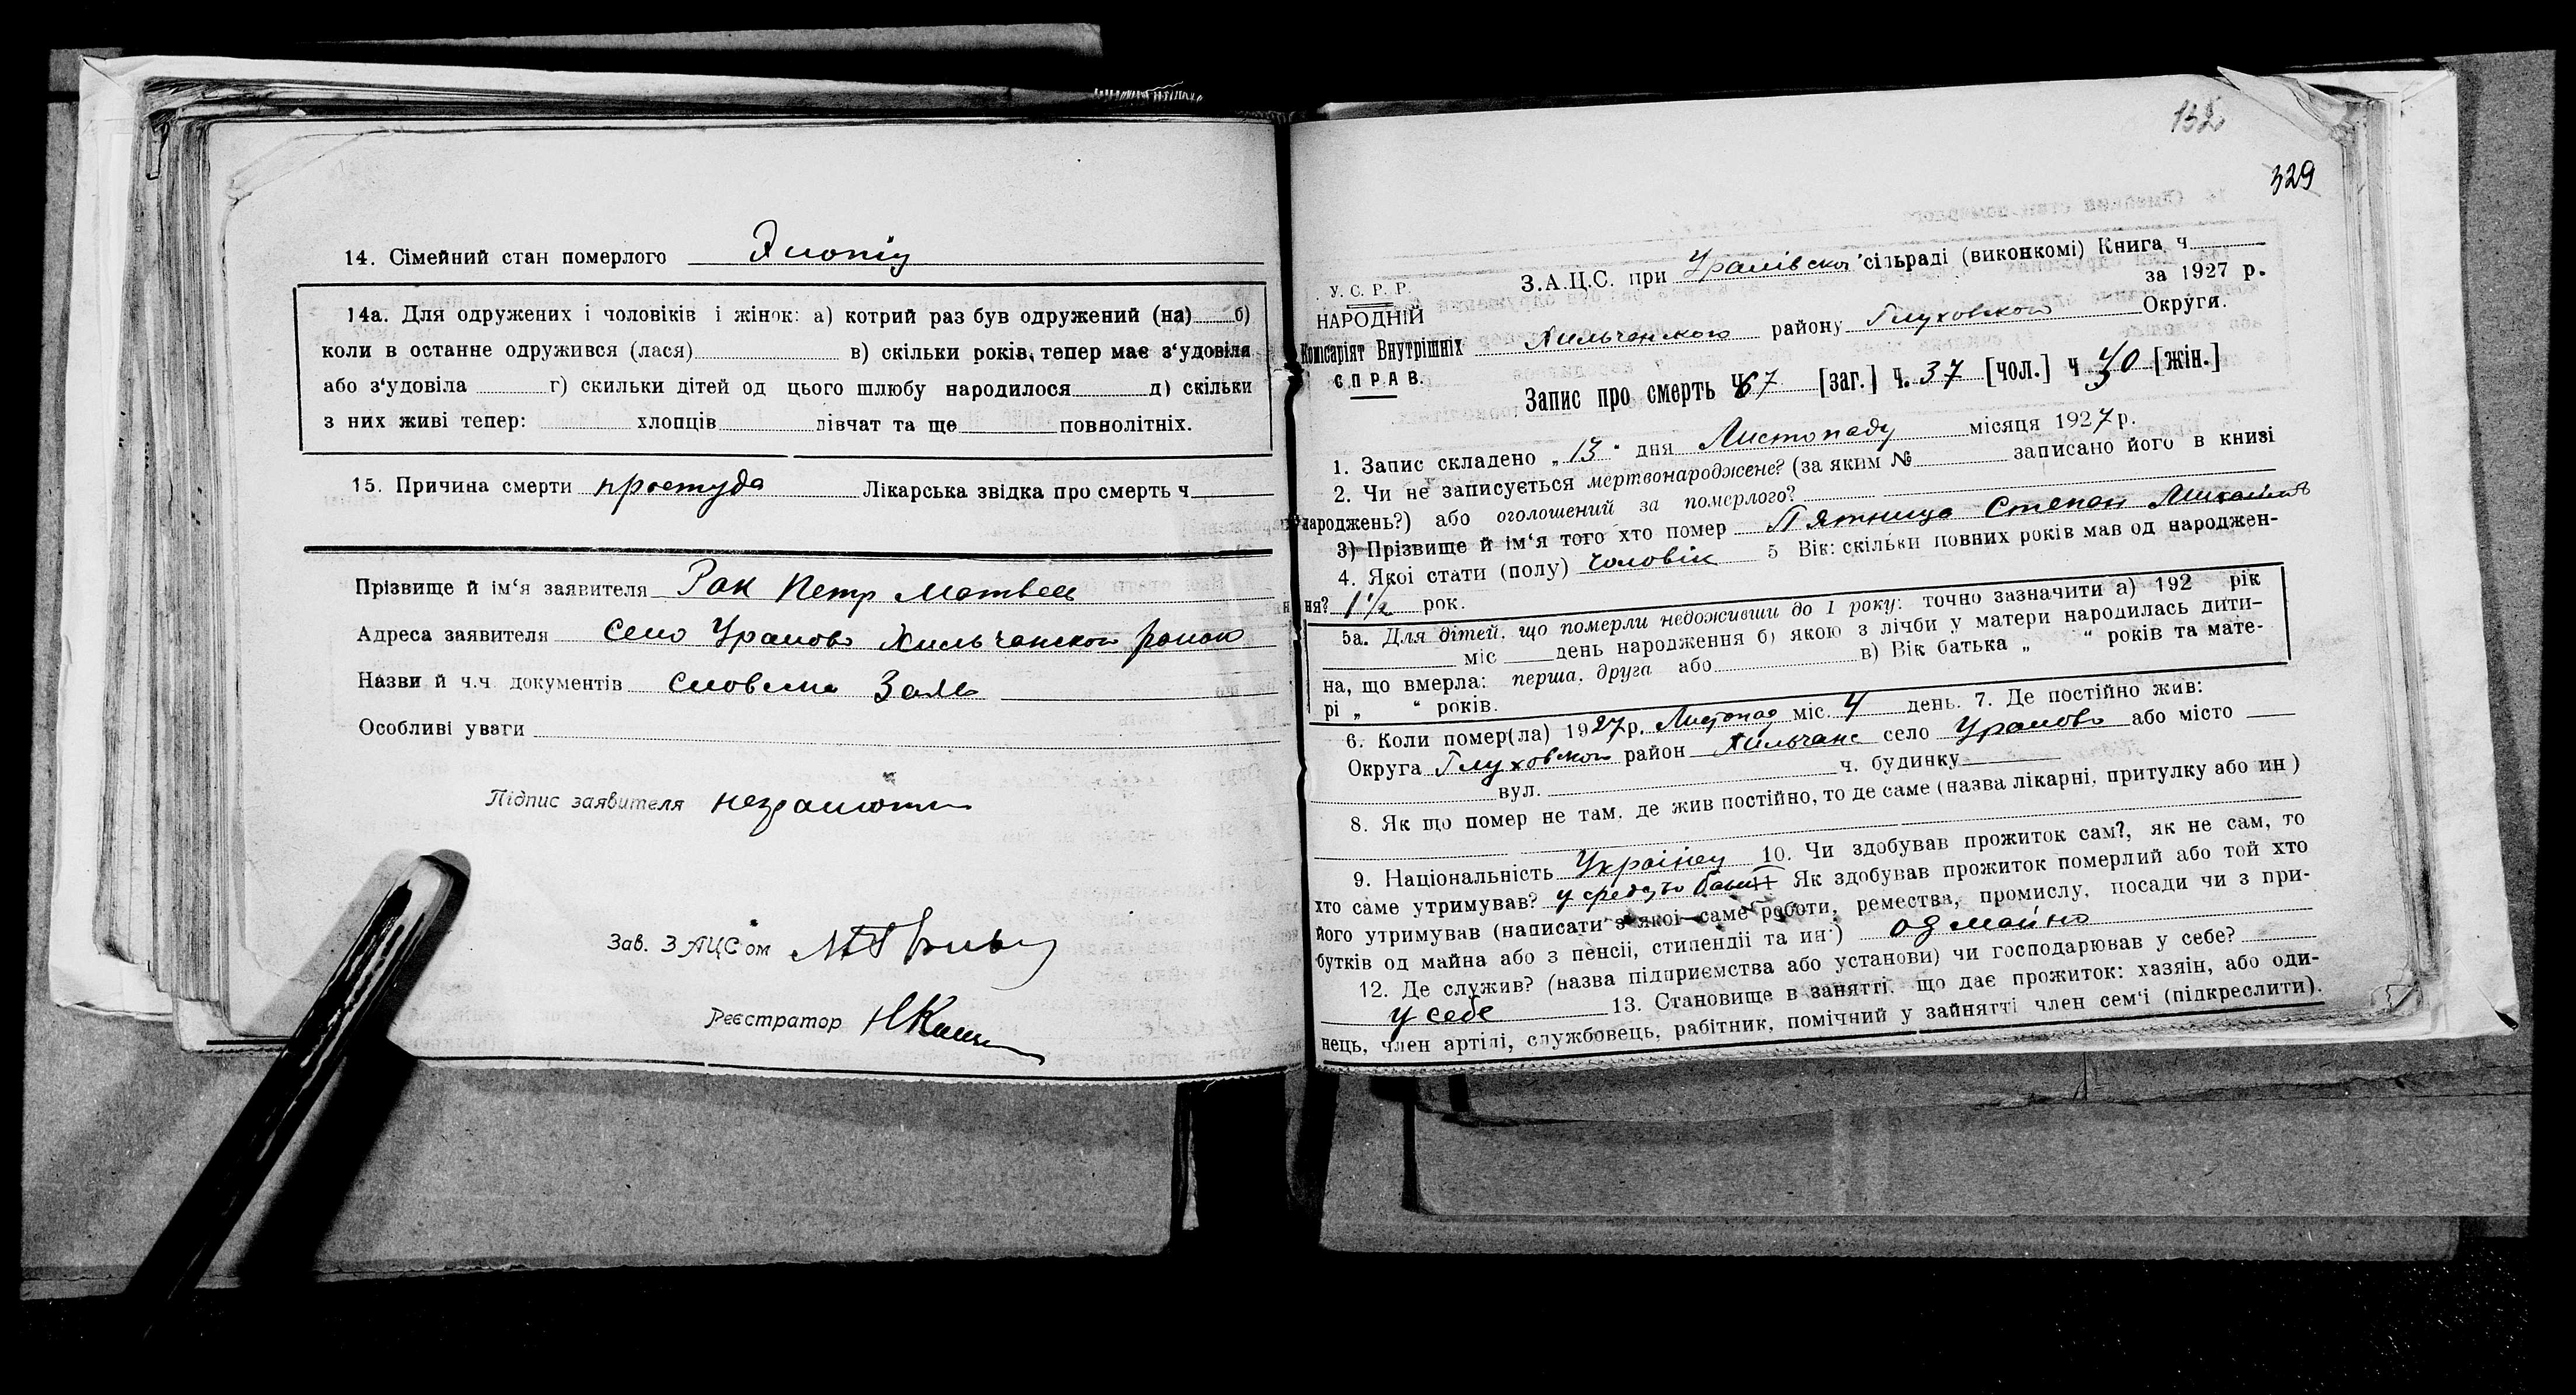 14. Сімейний стан померлого
14а. Для одружених і чоловіків і жінок: а) котрий раз був одружений (на) б)
коли в останне одружився (лася) в) скільки років, тепер має з‘удовіла
або з‘удовіла г) скильки дітей од цього шлюбу народилося д) скільки
з них живі тепер: хлопців дівчат та ще повнолітніх.
15. Причина смерти простуда Лікарська звідка про смерть ч
Прізвище й ім‘я заявителя Рак Петр Матвеев
Адреса заявителя село Уралово Хильчанского район
Назви й ч.ч документів словесно
Особливі уваги
Підпис заявителя
Зав. ЗАЦСом
Реєстратор
132
329
У. С. Р. Р.
НАРОДНІЙ
Комісаріят Внутрішніх
СПРАВ.
З.А.Ц.С. при сільраді (виконкомі) Книга ч
за 1927 р.
Хильчанского району Глуховского Округи.
Запис про смерть Ч 67 [заг.] ч. 37 [чол.] ч 30 [жін.]
1. Запис складено „13“ дня Листопаду місяця 1927 р.
2. Чи не записується мертвонароджене? (за яким № записано його в книзі
народжень?) або оголошений за померлого?
3) Прізвище й ім‘я того хто помер Пятница Степан
4. Якоі стати (полу) Чоловік 5 Вік: скільки повних років мав од народжен-
ня? 1½ рок.
5а. Для дітей, що померли недоживши до 1 року: точно зазначити а) 192 рік
міс день народження б) якою з лічби у матери народилась дити-
на, що вмерла: перша, друга або в) Вік батька „ “ років та мате-
рі „ “ років.
6. Коли помер(ла) 1927 р. Листопад міс. 4 день. 7. Де постійно жив:
Округа Глуховског район Хильчанс село Уралово або місто
вул. ч. будинку
8. Як що помер не там, де жив постійно, то де саме (назва лікарні, притулку або ин)
9. Національність Українец 10. Чи здобував прожиток сам?, як не сам, то
хто саме утримував? Як здобував прожиток померлий або той хто
його утримував (написати з якоі саме роботи, ремества, промислу, посади чи з при-
бутків од майна або з пенсіі, стипендіі та ин) од майно
12. Де служив? (назва підприємства або установи) чи господарював у себе?
у себе 13. Становище в занятті, що дає прожиток: хазяін, або оди-
нець, член артілі, службовець, рабітник, помічний у зайнятті член сем‘і (підкреслити).